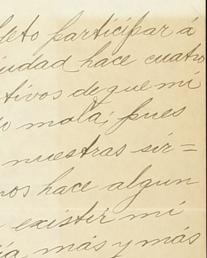 leto participar á
iudad hace cuatro
tivos de que mi
mala; pues
nuestras sir=
nos hace algun
existir mi
más y más